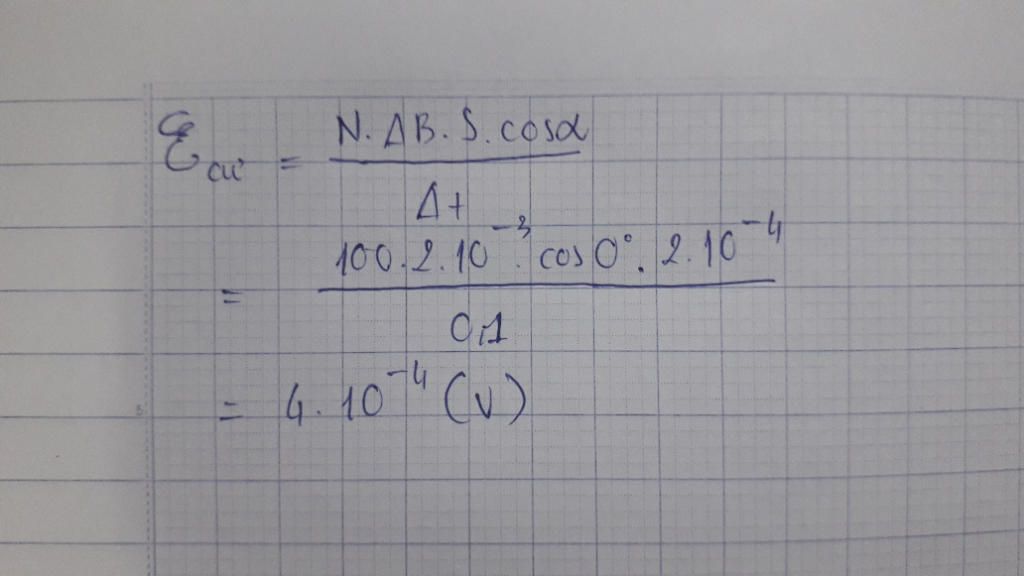 Ɛcư = N.ΔB.S.cosα / Δt
= 100.2.10⁻³.cos0°.2.10⁻⁴ / 0,1
= 4.10⁻⁴ (V)